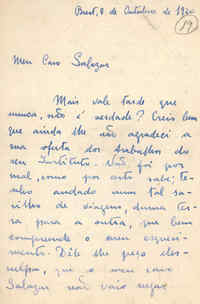 Brest, 9 de Outubro de 1920
19
Meu Caro Salazar
Mais vale tarde que
nunca, não é verdade? Creio bem
que ainda lhe não agradeci a
sua oferta dos trabalhos do
seu Instituto. Não foi por
mal, como por certo sabe; te-
nho andado num tal sa-
rilho de viagens, duma ter-
ra para a outra, que bem
compreende o meu esqueci-
mento. Dele lhe peço des-
culpa, que o meu caro
Salazar não vai negar